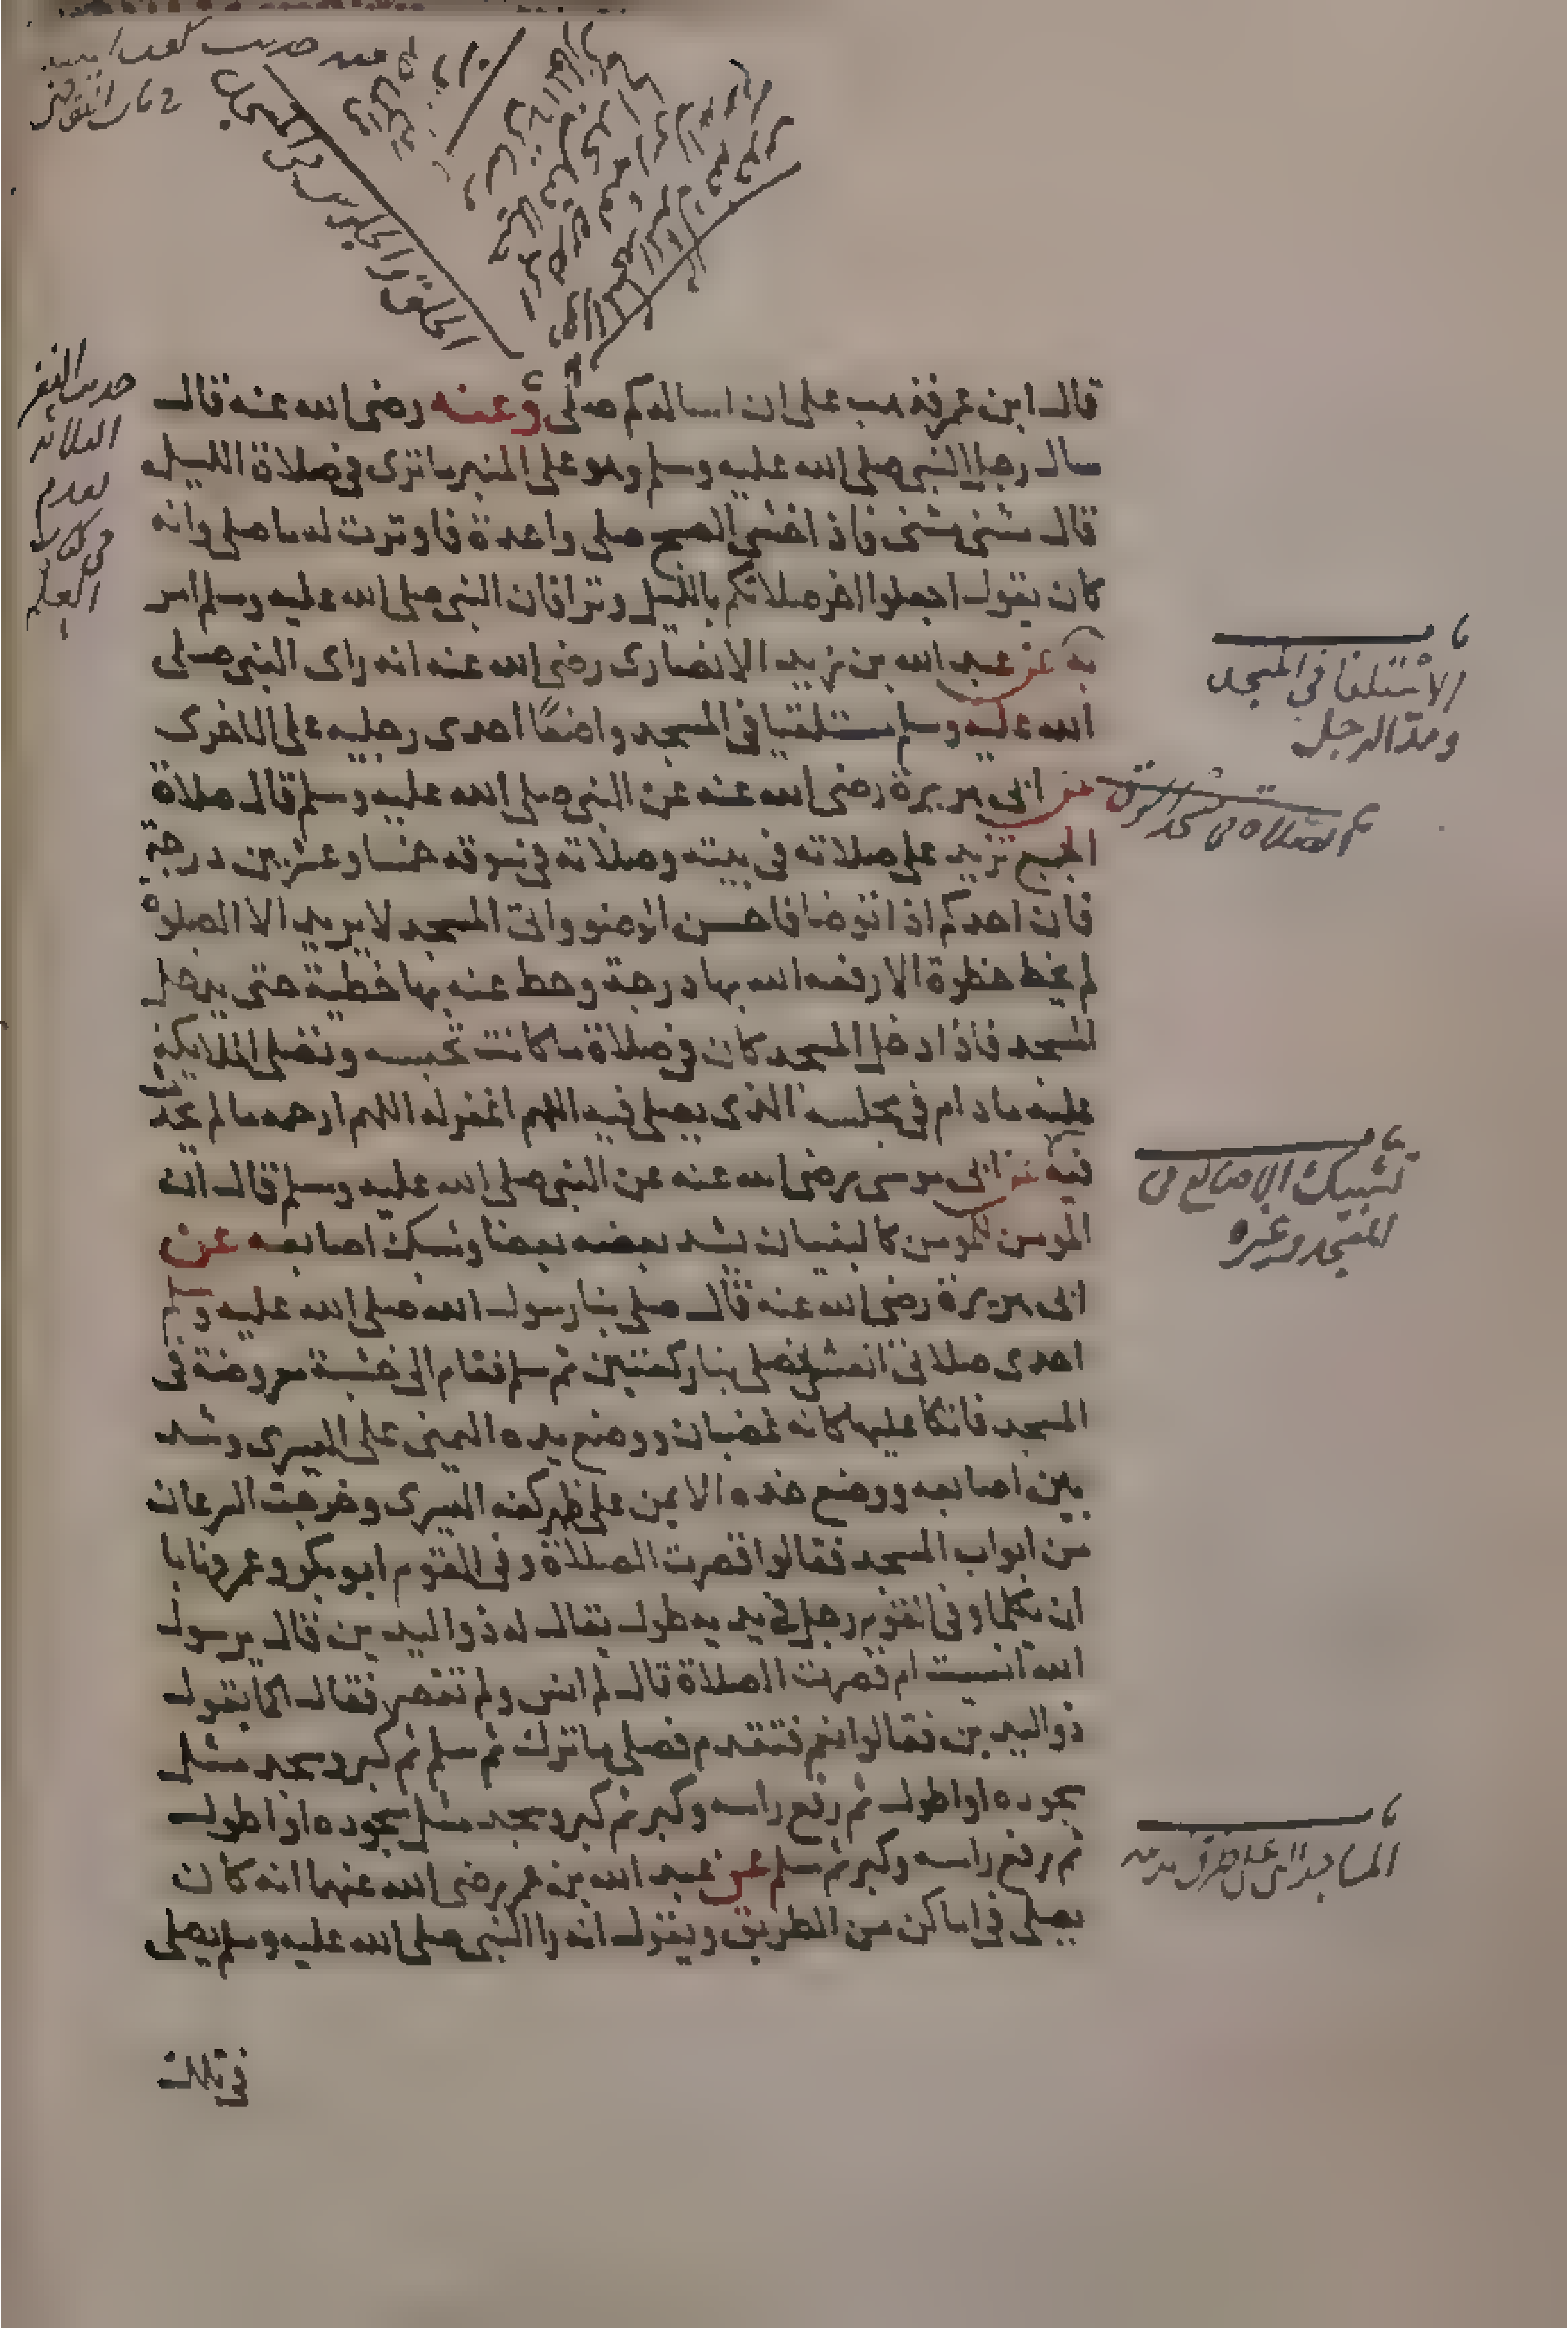 الحلق والجلوس في المسجد
حديث النفر
الثلاثة
تقدم
في كتاب
العلم
قال ابن عمر فذهب على ان اساله كم صلى وعنه رضى الله عنه قال
سال رجل النبي صلى الله عليه وسلم وهو على المنبر ما ترى في صلاة الليل
قال مثنى مثنى فاذا خشى الصبح صلى واحدة فاوترت له ما صلى وانه
كان يقول اجعلوا اخر صلاتكم بالليل وترا فان النبي صلى الله عليه وسلم امر
به عن عبد الله بن زيد الانصارى رضى الله عنه انه راى النبي صلى
الله عليه وسلم مستلقيا في المسجد واضعًا احدى رجليه على الاخرى
عن ابى هريرة رضى الله عنه عن النبي صلى الله عليه وسلم قال صلاة
الجميع تزيد على صلاته في بيته وصلاته في سوقه خمسا وعشرين درجة
فان احدكم اذا توضا فاحسن الوضو واتى المسجد لا يريد الا الصلوة
لم يخط خطوة الا رفعه الله بها درجة وحط عنه بها خطية حتى يدخل
المسجد فاذا دخل المسجد كان في صلاة ما كانت تحبسه وتصلى الملايكة
عليه ما دام في مجلسه الذى يصلى فيه اللهم اغفر له اللهم ارحمه ما لم يحدث
فيه عن ابى موسى رضى الله عنه عن النبي صلى الله عليه وسلم قال ان
المومن للمومن كالبنيان يشد بعضه بعضا وشبك اصابعه عن
ابى هريرة رضى الله عنه قال صلى بنا رسول الله صلى الله عليه وسلم
احدى صلاتى العشى فصلى بنا ركعتين ثم سلم فقام الى خشبة معروضة في
المسجد فاتكا عليها كانه غضبان ووضع يده اليمنى على اليسرى وشبك
بين اصابعه ووضع خده الايمن على ظهر كفه اليسرى وخرجت السرعان
من ابواب المسجد فقالوا قصرت الصلاة وفى القوم ابو بكر وعمر فهابا
ان يكلماه وفى القوم رجل في يديه طول يقال له ذو اليدين قال يرسول
الله انسيت ام قصرت الصلاة قال لم انس ولم تقصر فقال اكما يقول
ذو اليدين فقالوا نعم فتقدم فصلى ما ترك ثم سلم ثم كبر وسجد مثل
سجوده او اطول ثم رفع راسه وكبر ثم كبر وسجد مثل سجوده او اطول
ثم رفع راسه وكبر ثم سلم عن عبد الله بن عمر رضى الله عنهما انه كان
يصلى في اماكن من الطريق ويقول انه راا النبي صلى الله عليه وسلم يصلى
في تلك
باب
الاستلقا في المسجد
ومدّ الرجل
الصلاة في مسجد السوق
باب
تشبيك الاصابع في
المسجد وغيره
باب
المساجد التى على طرق